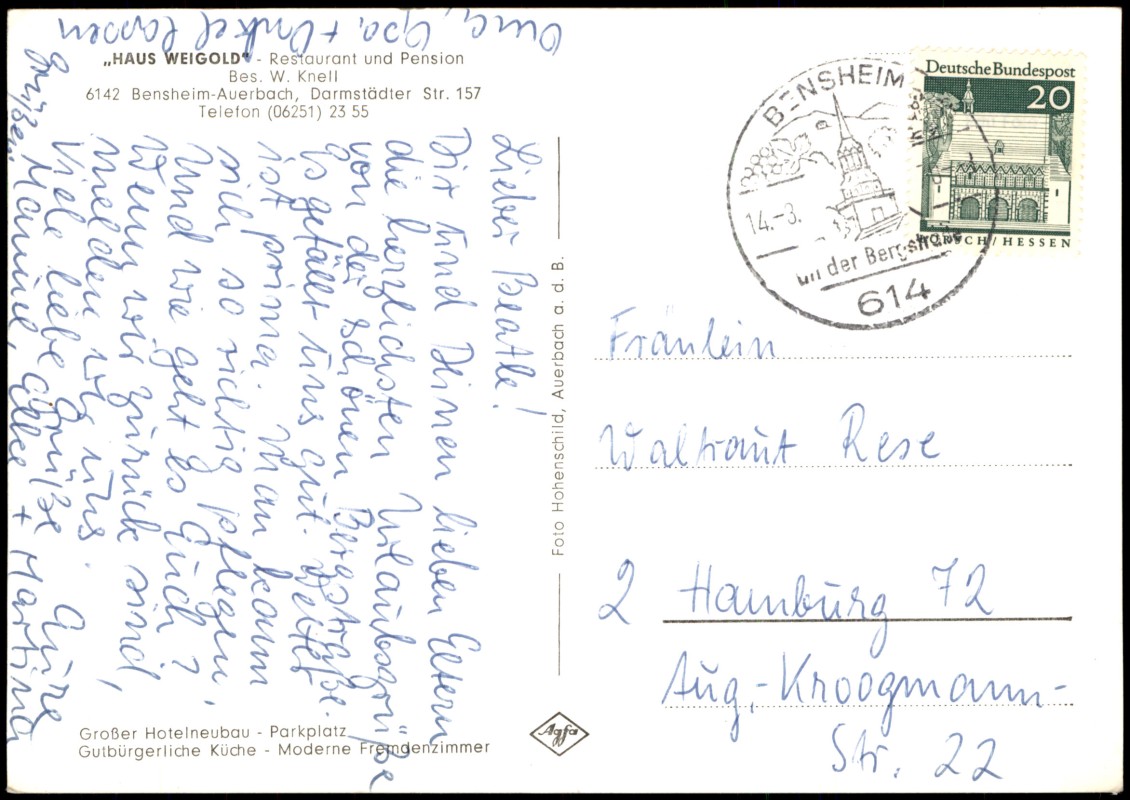 „HAUS WEIGOLD" - Restaurant und Pension
Bes. W. Knell
6142 Bensheim-Auerbach, Darmstädter Str. 157
Telefon (06251) 23 55
Lieber Beatle!
Dir und Deinen lieben Eltern
die herzlichsten Urlaubsgrüße
von der schönen Bergstraße.
Es gefällt uns gut. Wetter
ist prima. Man kann
sich so richtig pflegen,
Und wie geht es Euch?
Wenn wir zurück sind,
melden wir uns.
Viele liebe Grüße Eure
Hannel, + Martina
Oma, Opa + Onkel lassen
grüßen
Großer Hotelneubau - Parkplatz
Gutbürgerliche Küche - Moderne Fremdenzimmer
Foto Hohenschild, Auerbach a. d. B.
Agfa
BENSHEIM
14.-3.
an der Bergstraße
614
Deutsche Bundespost
20
RSCH/HESSEN
Fräulein
Waltraut Rese
2 Hamburg 72
Aug.-Kroogmann-
Str. 22